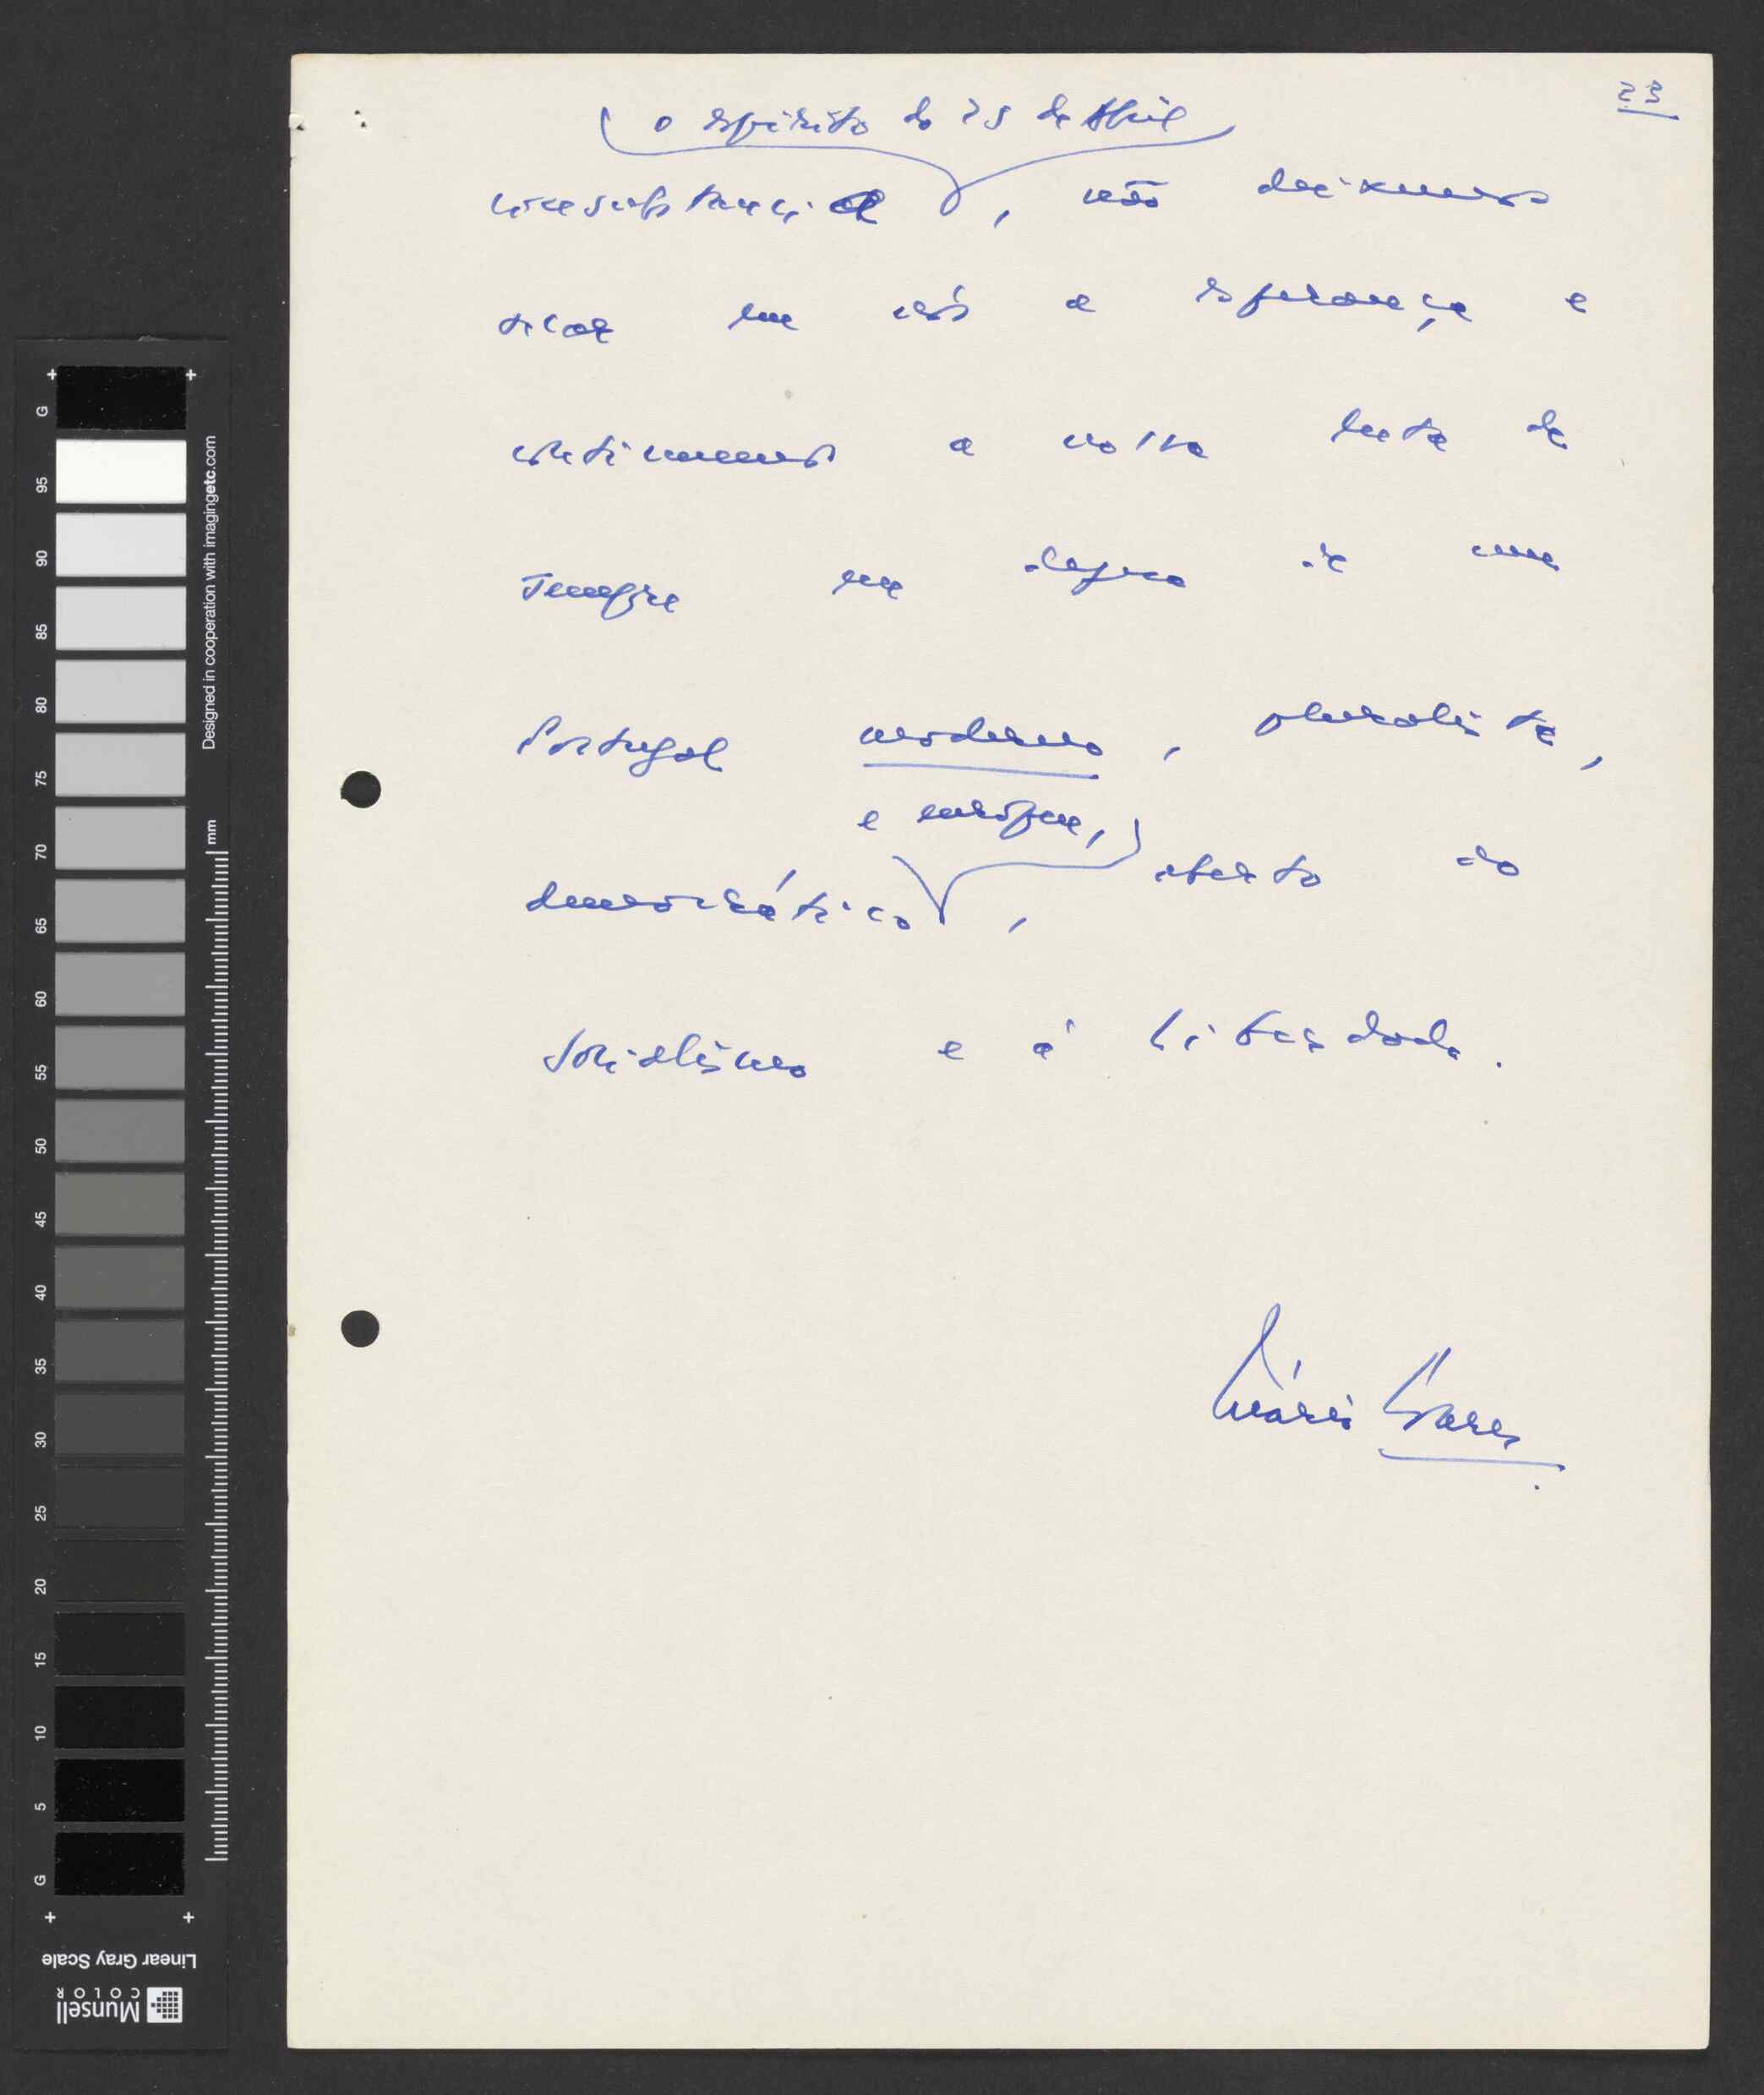 23
o espírito do 25 de Abril
consubstancia, não deixemos
secar em nós a esperança e
continuemos a nossa luta de
sempre em defesa de um
Portugal moderno, pluralista,
e europeu,
democrático, aberto ao
socialismo e à liberdade.
Mário Soares
G
95
90
85
80
75
70
65
60
55
50
45
40
35
30
25
20
15
10
5
G
mm
Designed in cooperation with imagingetc.com
Linear Gray Scale
Munsell
COLOR